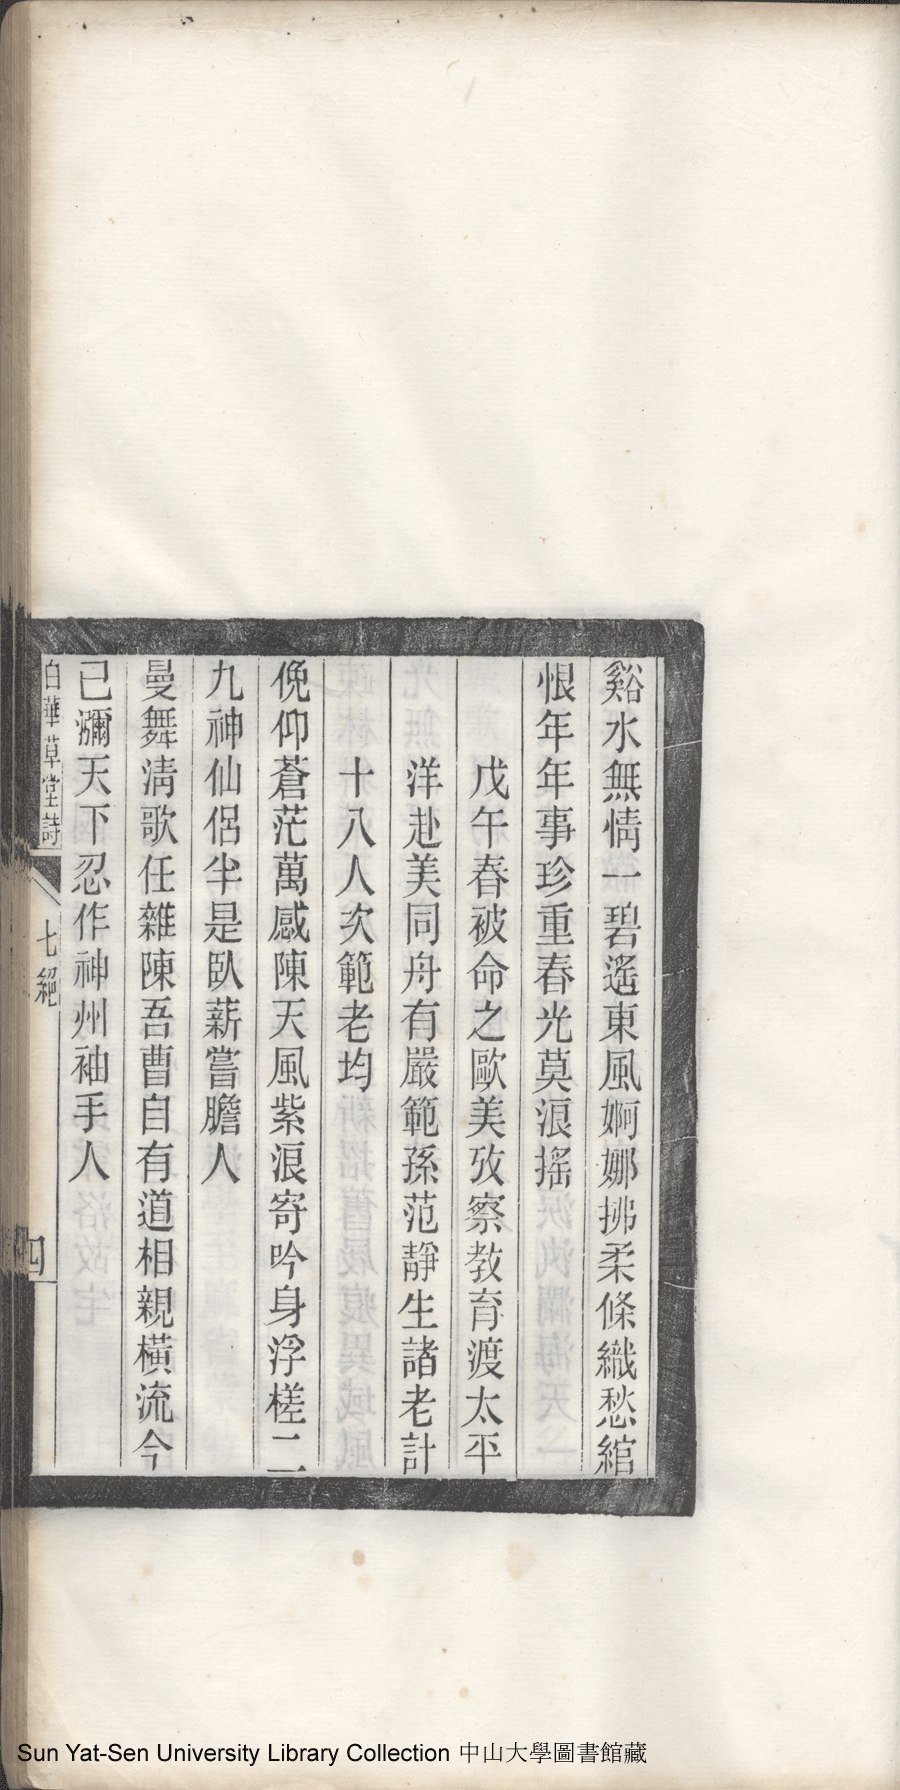 谿水無情一碧遙東風婀娜拂柔條織愁綰
恨年年事珍重春光莫浪搖
戊午春被命之歐美攷察教育渡太平
洋赴美同舟有嚴範孫范靜生諸老計
十八人次範老均
俛仰蒼茫萬感陳天風紫浪寄吟身浮槎二
九神仙侶半是臥薪嘗膽人
曼舞淸歌任雜陳吾曹自有道相親橫流今
已瀰天下忍作神州袖手人
白華草堂詩
七絕
四
Sun Yat-Sen University Library Collection 中山大學圖書館藏